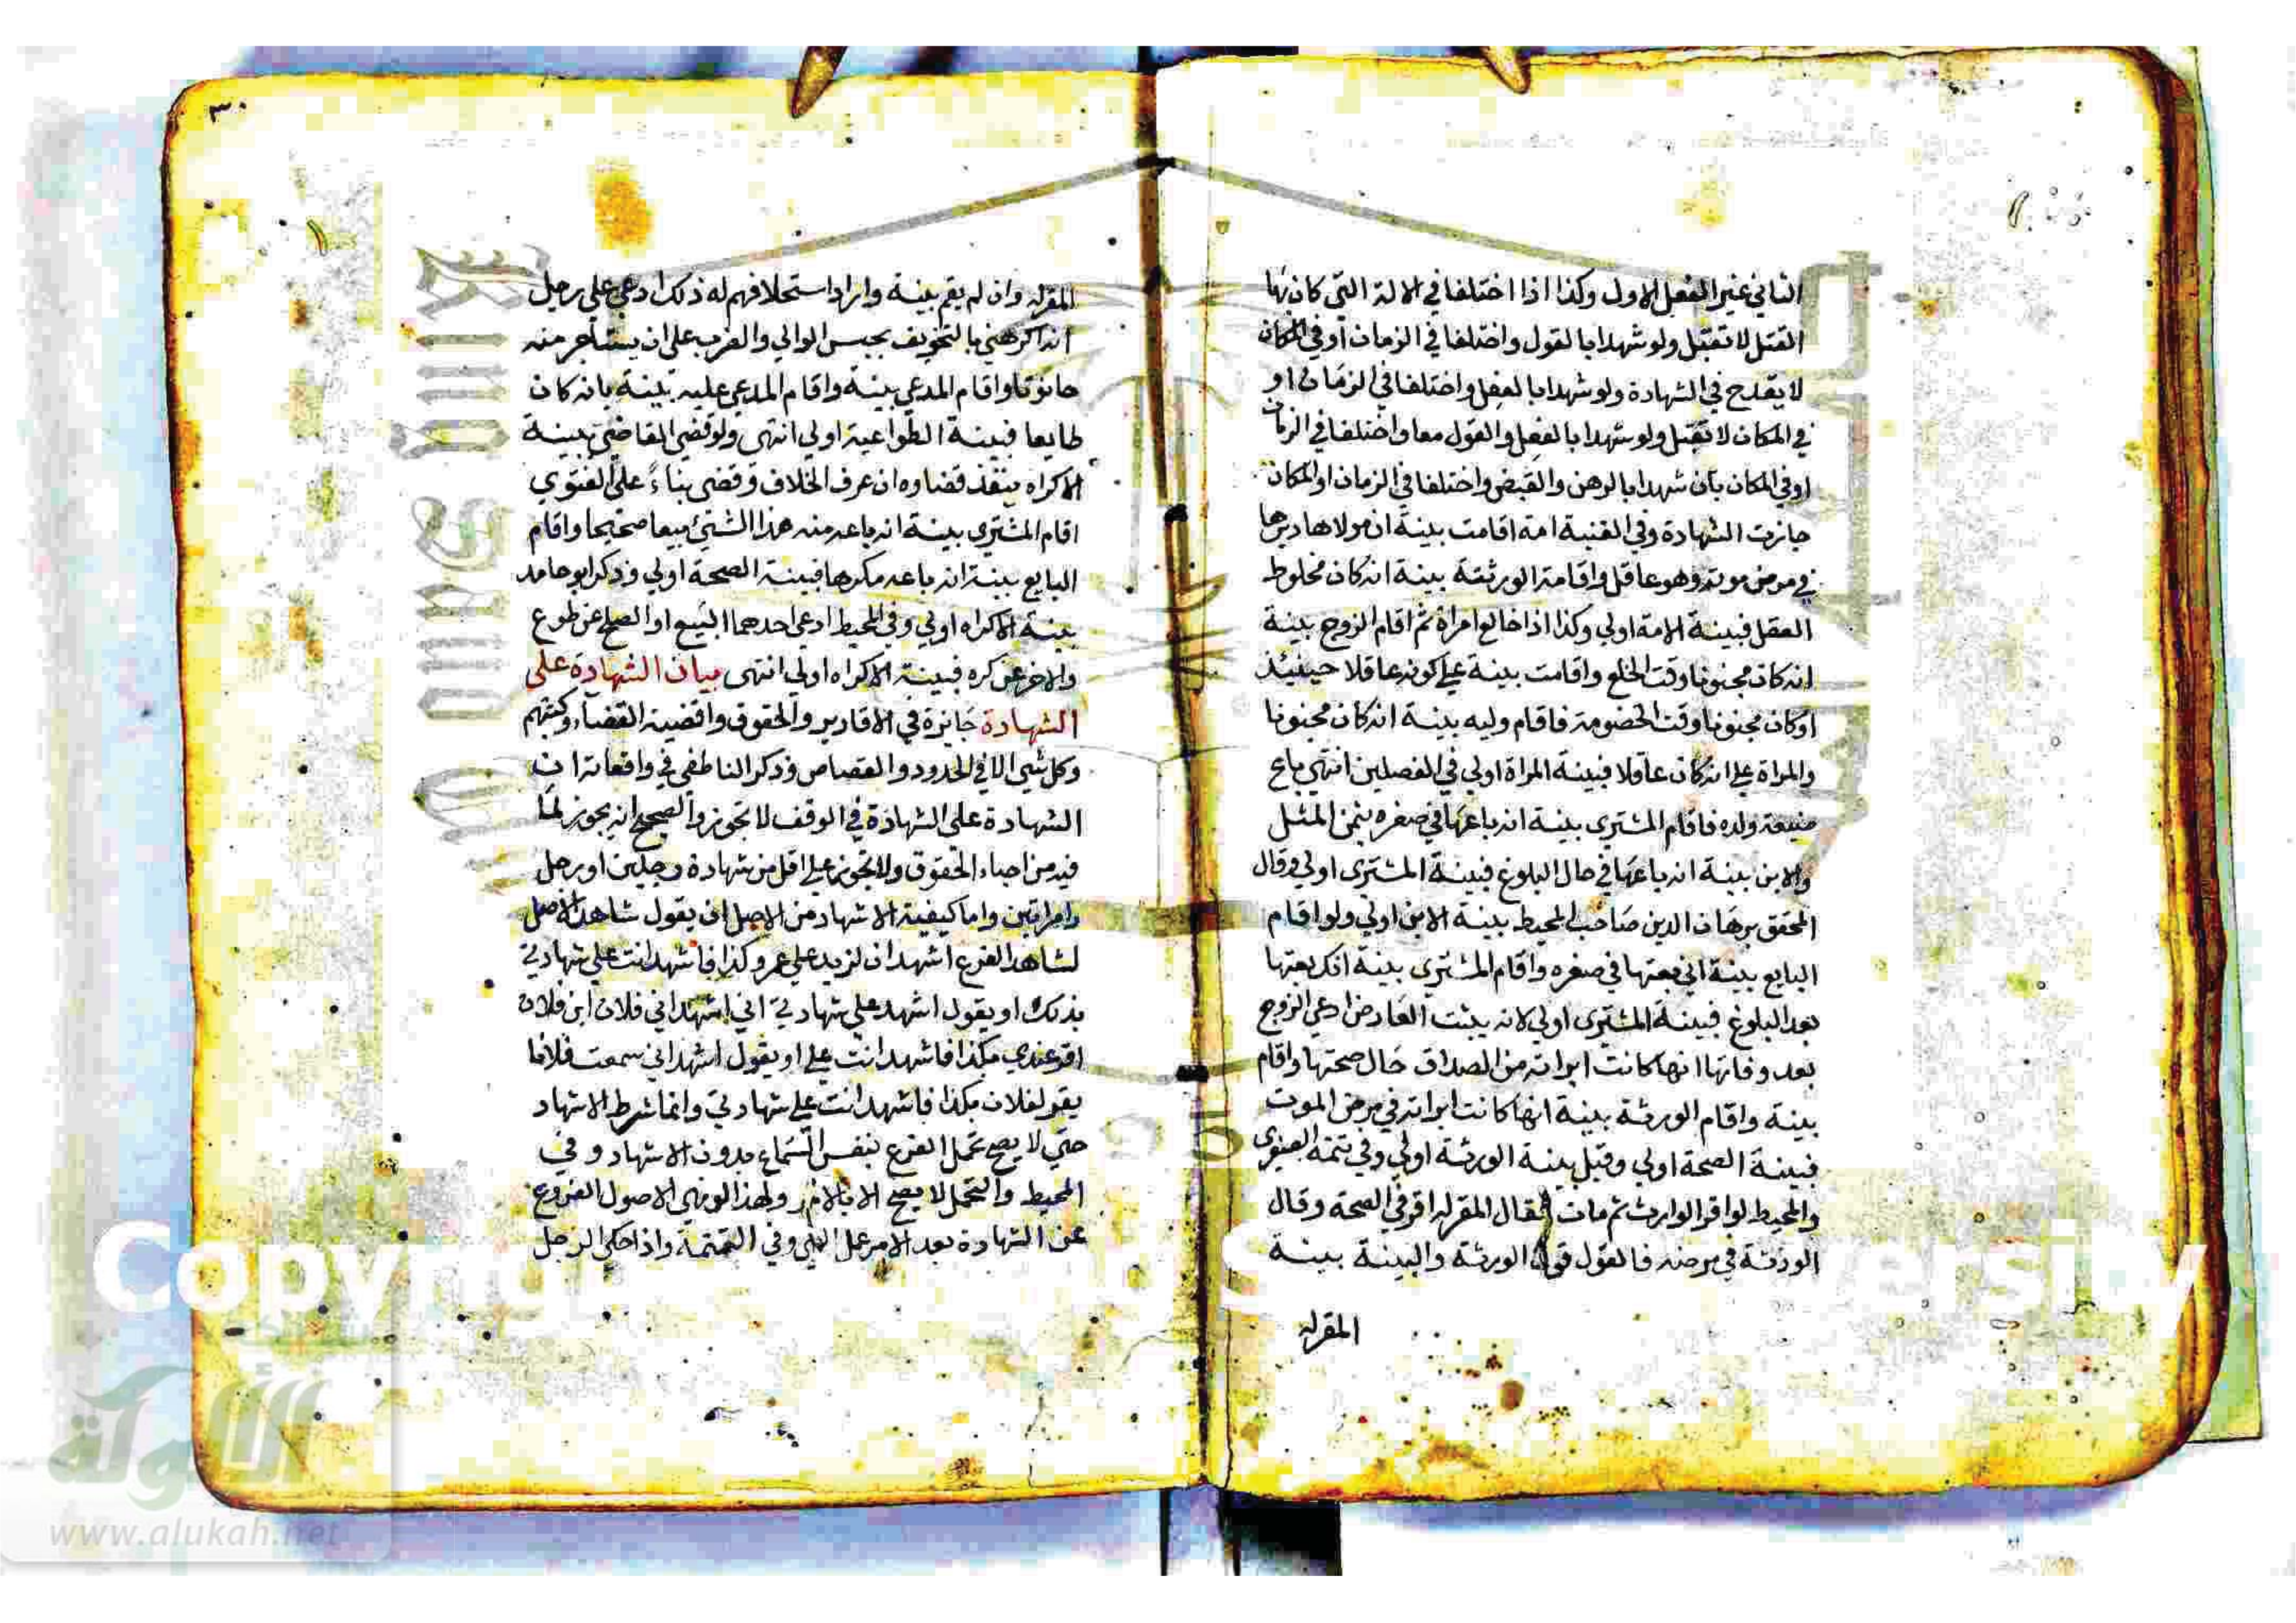 الثاني غير الفعل الاول وكذا اذا اختلفا في الالة التي كان بها
القتل لا تقبل ولو شهدا بالقول واختلفا في الزمان او في المكان
لا يقدح في الشهادة ولو شهدا بالفعل واختلفا في الزمان او
في المكان لا تقبل ولو شهدا بالفعل والقول معا واختلفا في الزمان
او في المكان بان شهدا بالرهن والقبض واختلفا في الزمان او المكان
جازت الشهادة وفي القنية امة اقامت بينة ان مولاها دبرها
في مرض موته وهو عاقل واقامة الورثة بينة انه كان مخلوط
العقل فبينة الامة اولي وكذا اذا خالع امراة ثم اقام الزوج بينة
انه كان مجنونا وقت الخلع واقامت بينة علي كونه عاقلا حينيئذ
او كان مجنونا وقت الخصومة فاقام وليه بينة انه كان مجنونا
والمراة علي انه كان عاقلا فبينة المراة اولي في الفصلين انتهي باع
ضيعة ولده فاقام المشتري بينة انه باعها في صغره بثمن المثل
والابن بينة انه باعها في حال البلوغ فبينة المشتري اولي وقال
المحقق برهان الدين صاحب المحيط بينة الابن اولي ولو اقام
البايع بينة اني بعتها في صغره واقام المشتري بينة انك بعتها
بعد البلوغ فبينة المشتري اولي لانه يثبت العارض ادعي الزوج
بعد وفاتها انها كانت ابراته من الصداق حال صحتها واقام
بينة واقام الورثة بينة انها كانت ابراته في مرض الموت
فبينة الصحة اولي وقيل بينة الورثة اولي وفي تتمة
والمحيط لو اقر الوارث ثم مات فقال المقر له اقر في الصحة وقال
الورثة في مرضه فالقول قول الورثة والبينة بينة
المقر له
٣٠
المقر له وان لم يقم بينة واراد استحلافهم له ذلك ادعي علي رجل
انه اكرهني بالتخويف بحبس الوالي والضرب علي ان يستاجر منه
حانوتا واقام المدعي بينة واقام المدعي عليه بينة بانه كان
طايعا فبينة الطواعية اولي انتهى ولو قضي القاضي بينة
الاكراه ينفذ قضاوه ان عرف الخلاف وقضى بناء علي الفتوي
اقام المشتري بينة انه باعه منه هذا الشئ بيعا صحيحا واقام
البايع بينة انه باعه مكرها فبينة الصحة اولي وذكر ابو حامد
بينة الاكراه اولي وفي المحيط ادعي احدهما البيع او الصلح عن طوع
والاخر عن كره فبينة الاكراه اولي انتهى بيان الشهادة على
الشهادة جايزة في الاقارير والحقوق واقضية القضاء وكتبهم
وكل شي الا في الحدود والقصاص وذكر الناطفي في واقعاته ان
الشهادة على الشهادة في الوقف لا تجوز والصحيح انه يجوز لما
فيه من احياء الحقوق ولا تجوز علي اقل من شهادة رجلين او رجل
وامراتين واما كيفية الاشهاد من الاصل ان يقول شاهد الاصل
لشاهد الفرع اشهد ان لزيد علي عمرو كذا فاشهد انت علي شهادتي
بذلك او يقول اشهد علي شهادتي اني اشهد ان فلان ابن فلان
اقر عندي بكذا فاشهد انت علي او يقول اشهد اني سمعت فلانا
يقر لفلان بكذا فاشهد انت علي شهادتي وانما شرط الاشهاد
حتي لا يصح تحمل الفرع بنفس السماع بدون الاشهاد وفي
المحيط والتحمل لا يصح الا بالامر ولهذا لو نهي الاصول الفروع
عن الشهادة بعد الامر عمل النهي وفي التتمة واذا حكي الرجل
Copyright © King Saud University
الألوكة
www.alukah.net